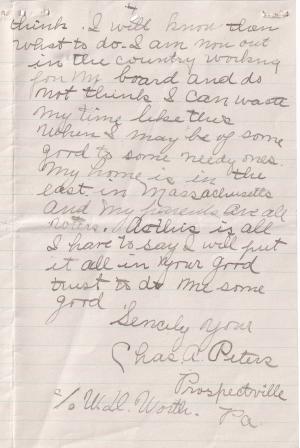 think. I will know then
what to do. I am now out
in the country working
for my board and do
not think I can waste
my time like this
When I may be of some
good to some needy ones.
My home is in the
east in Massachusetts
and my parents are all
voters. As this is all
I have to say I will put
it all in your good
trust to do me some
good
Sencily your
Chas A. Peters
Prospectville
Pa.
c/o W.H. Worth.